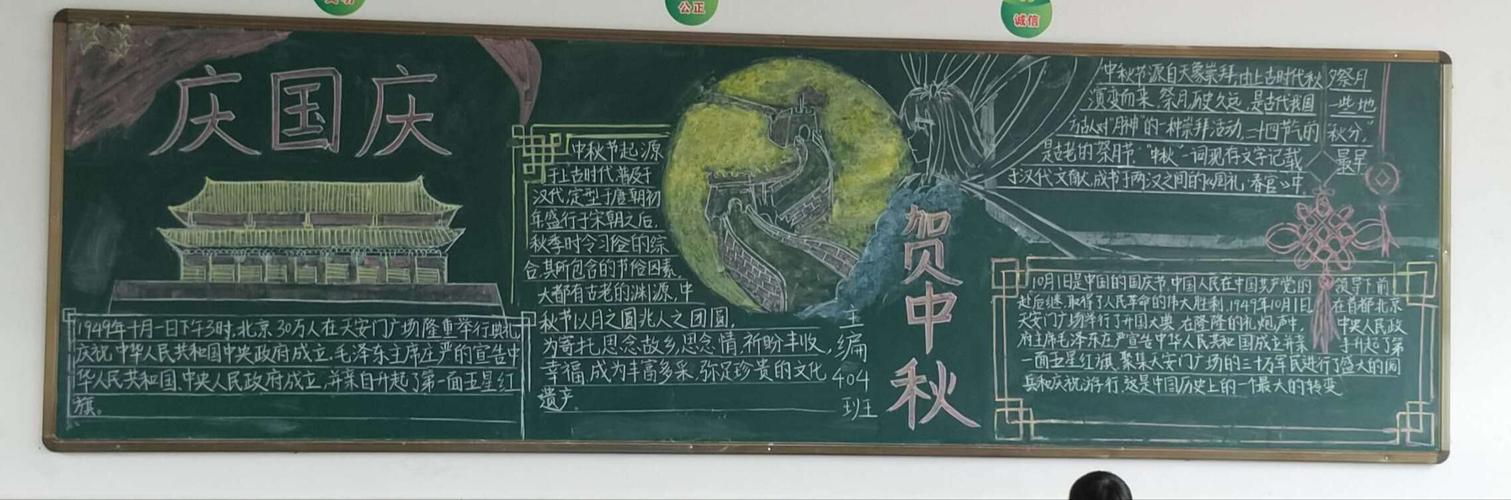 公正
诚信
庆国庆
1949年十月一日下午3时,北京30万人在天安门广场隆重举行典礼
庆祝中华人民共和国中央政府成立.毛泽东主席庄严的宣告中
华人民共和国,中央人民政府成立,并亲自升起了第一面五星红
旗。
中秋节起源
于上古时代,普及于
汉代,定型于唐朝初
年,盛行于宋朝之后,
秋季时令习俗的综
合,其所包含的节俗因素,
大都有古老的渊源,中
秋节以月之圆兆人之团圆
为寄托思念故乡,思念情,祈盼丰收,
幸福,成为丰富多采,弥足珍贵的文化
遗产.
主编
404
班
贺中秋
中秋节源自天象崇拜,由上古时代秋夕祭月
演变而来.祭月历史久远,是古代我国一些地
方古人对“月神”的一种崇拜活动,二十四节气的秋分,
是古老的“祭月节”.“中秋”一词现存文字记载最早
于汉代文献,成书于两汉之间的《周礼,春官》中
10月1日是中国的国庆节,中国人民在中国共产党的领导下前
赴后继,取得了人民革命的伟大胜利.1949年10月1日,在首都北京
天安门广场举行了开国大典,在隆隆的礼炮声中,中央人民政
府主席毛泽东庄严宣告中华人民共和国成立并亲手升起了第
一面五星红旗,聚集天安门广场的三十万军民进行了盛大的阅
兵和庆祝游行.这是中国历史上的一个最大的转变